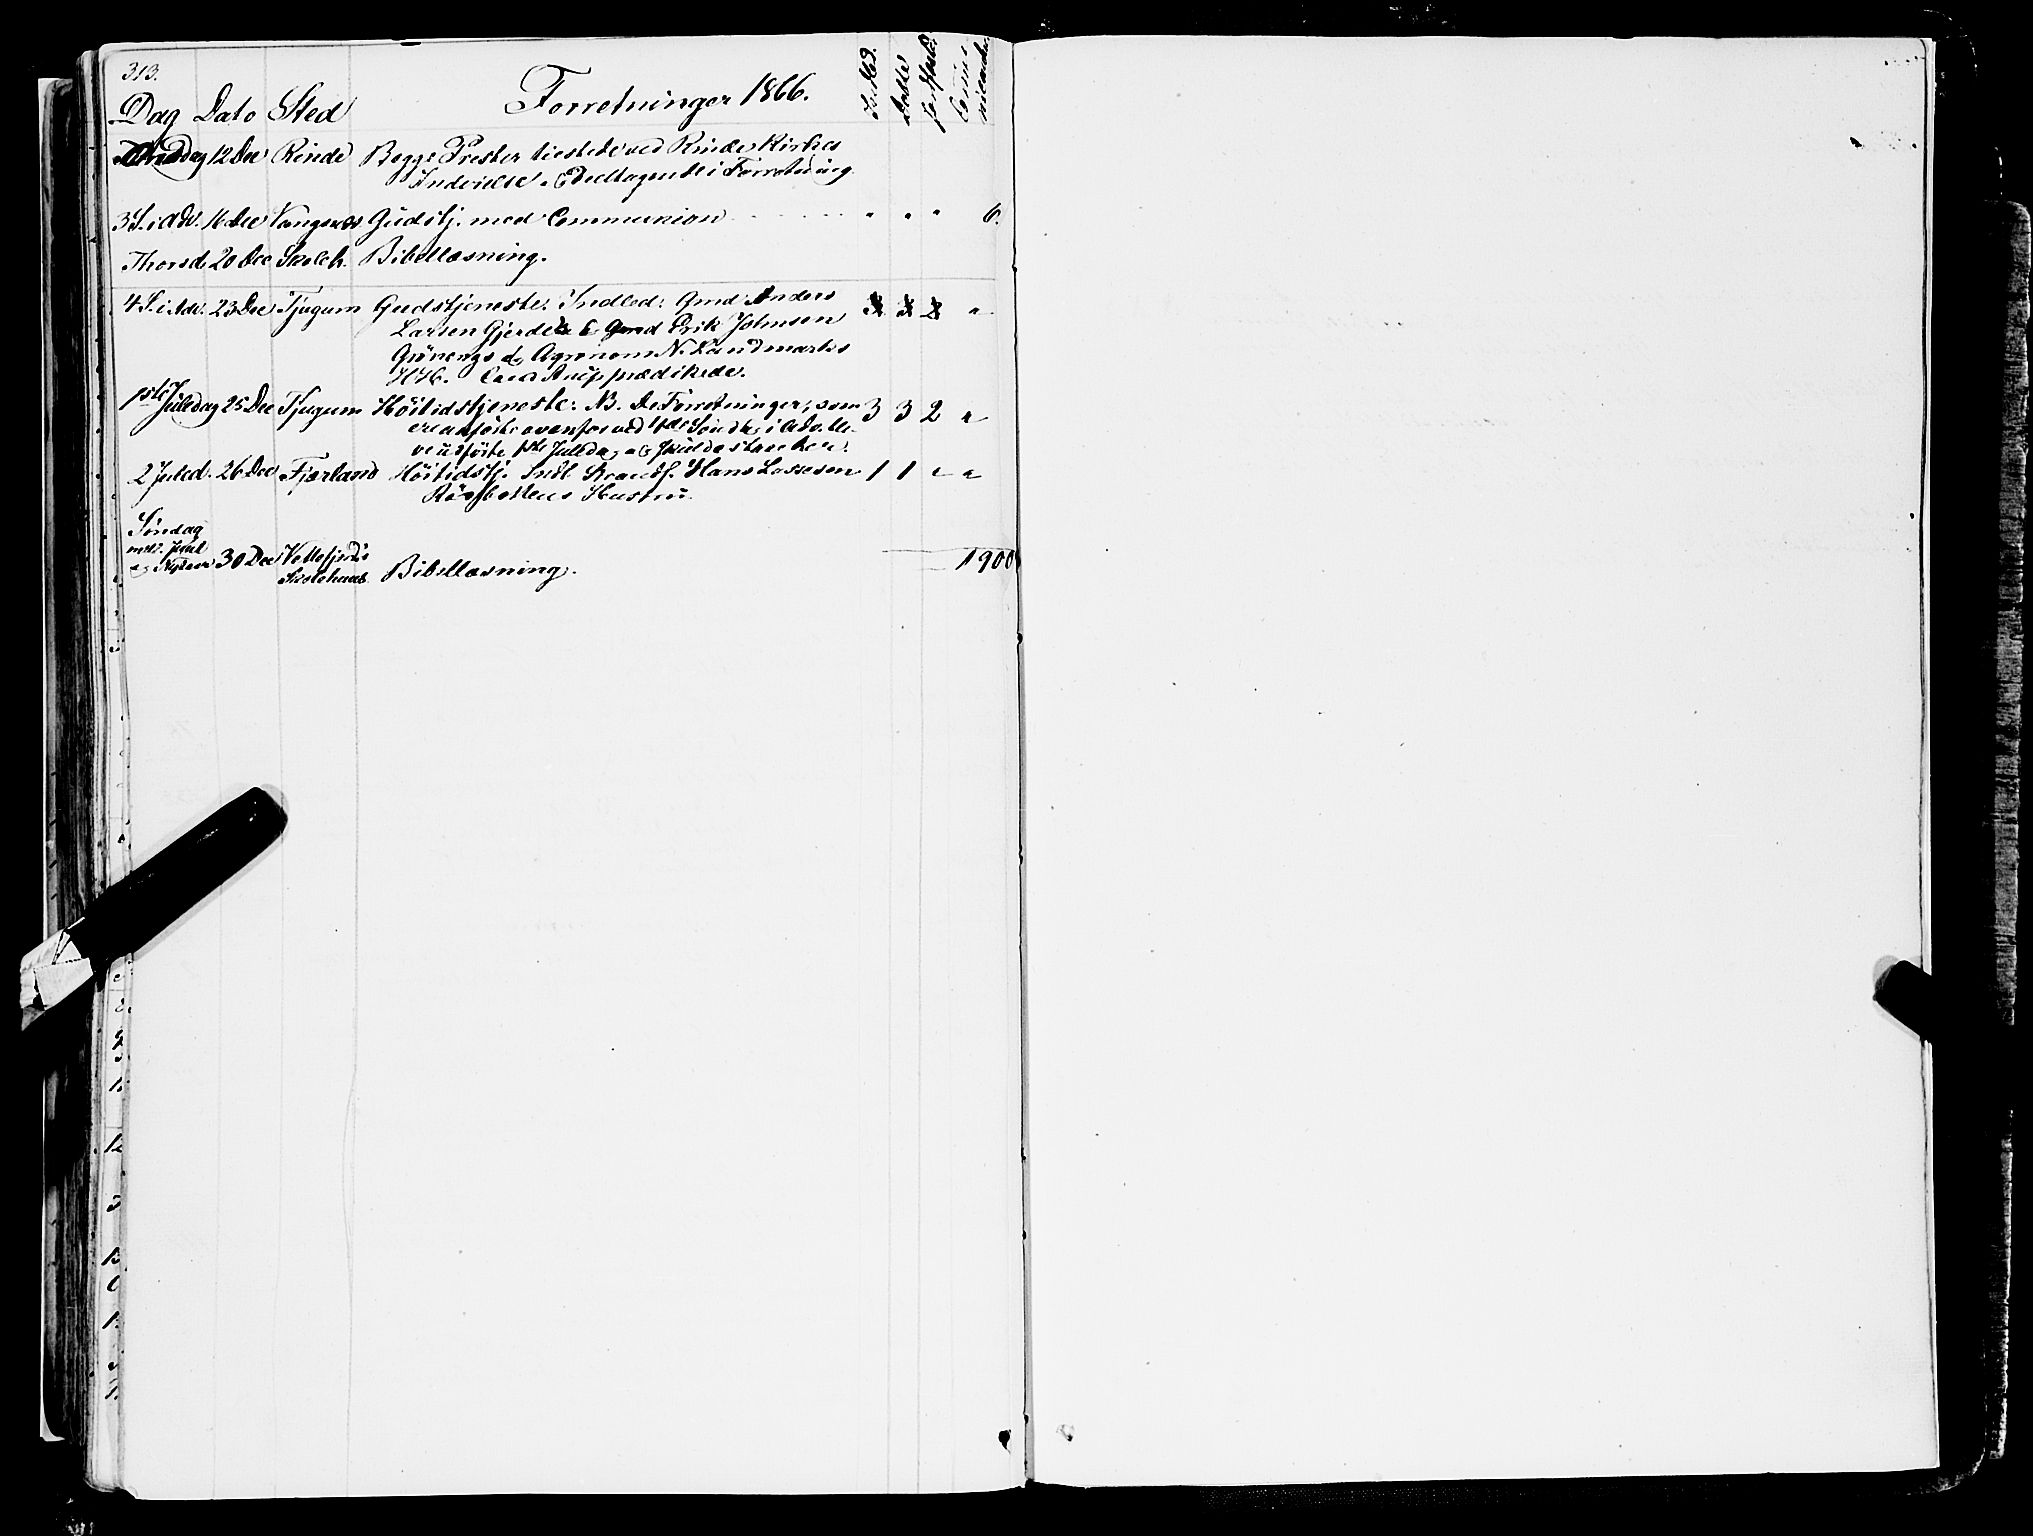 313.
Forretninger 1866.
Dag Dato Sted
Indled.
Døbte
Communicanter
Onsdag 12 Dec Rinde Begge Prester tilstede ved Rinde Kirkes
Indvielse og Deeltagende i Forretning
3 S. i Adv. 16 Dec Vangsnes Gudstj. med Communion " " " 6.
Thorsd. 20 Dec Skoleh. Bibellæsning.
4 S. i Adv. 23 Dec Tjugum Gudstjeneste. Indled: Gmd Anders 3 3 2 "
Larsen Gjerde's & Gmd Erik Johnsen
Grönengs & Agronom N. Landmarks
HH. Cand Arup prædikede.
1ste Juledag 25 Dec Tjugum Höitidstjeneste: NB. De Forretninger, som 3 3 2 "
ere anförte ovenfor ved 4de Sönd. i Adv. ble-
ve udförte 1ste Juledag
2 Juled. 26 Dec Fjærland Höitidstj. Indl Hans Lassesen 1 1 " "
Hustru.
Söndag
mell. Juul
og Nytaar 30 Dec Vetlefjords
Skolehuus. Bibellæsning.
1900